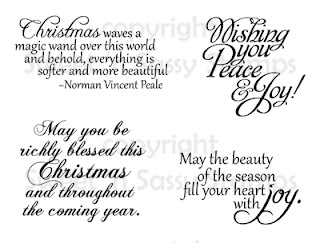 Christmas waves a
magic wand over this world
and behold, everything is
softer and more beautiful
~Norman Vincent Peale
Wishing
you
Peace
& Joy!
May you be
richly blessed this
Christmas
and throughout
the coming year.
May the beauty
of the season
fill your heart
with joy.
copyright
Sassy Stamps